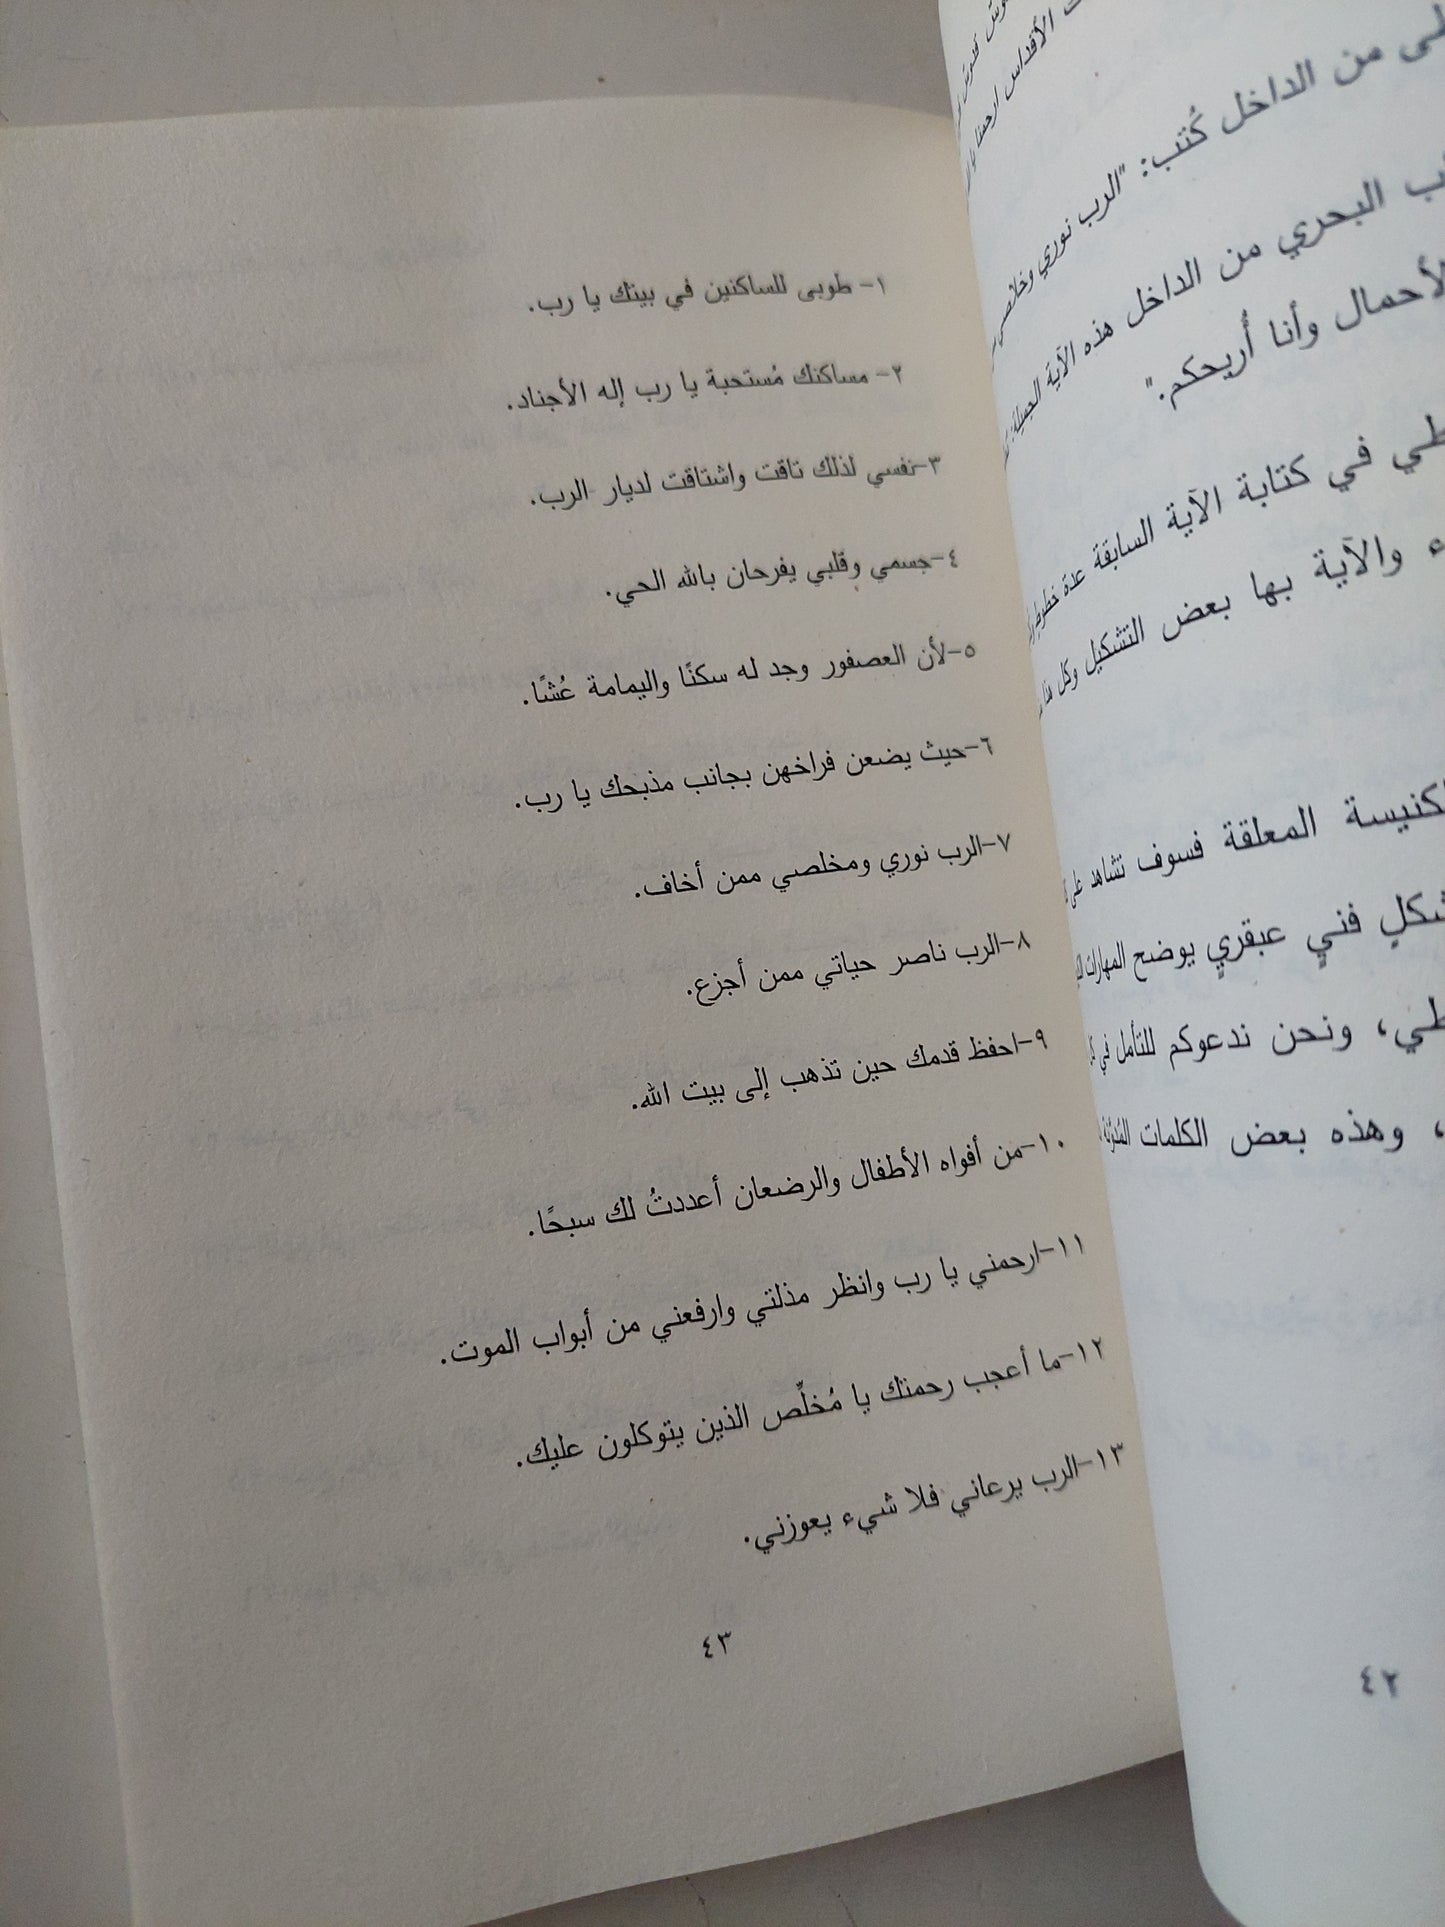 الأقداس ارحمنا
من الداخل كُتب: "الرب نوري وخلاصي
البحري من الداخل هذه الآية الجميلة:
الأحمال وأنا أُريحكم."
في كتابة الآية السابقة عدة خطوط
والآية بها بعض التشكيل وكل هذا
الكنيسة المعلقة فسوف تشاهد على
شكلٍ فنيٍ عبقريٍ يوضح المهارات
، ونحن ندعوكم للتأمل في
، وهذه بعض الكلمات المُدوّنة
٤٢
١- طوبى للساكنين في بيتك يا رب.
٢- مساكنك مُستحبة يا رب إله الأجناد.
٣-نفسي لذلك تاقت واشتاقت لديار الرب.
٤-جسمي وقلبي يفرحان بالله الحي.
٥-لأن العصفور وجد له سكنًا واليمامة عُشًا.
٦-حيث يضعن فراخهن بجانب مذبحك يا رب.
٧-الرب نوري ومخلصي ممن أخاف.
٨-الرب ناصر حياتي ممن أجزع.
٩-احفظ قدمك حين تذهب إلى بيت الله.
١٠-من أفواه الأطفال والرضعان أعددتُ لك سبحًا.
١١-ارحمني يا رب وانظر مذلتي وارفعني من أبواب الموت.
١٢-ما أعجب رحمتك يا مُخلِّص الذين يتوكلون عليك.
١٣-الرب يرعاني فلا شيء يعوزني.
٤٣